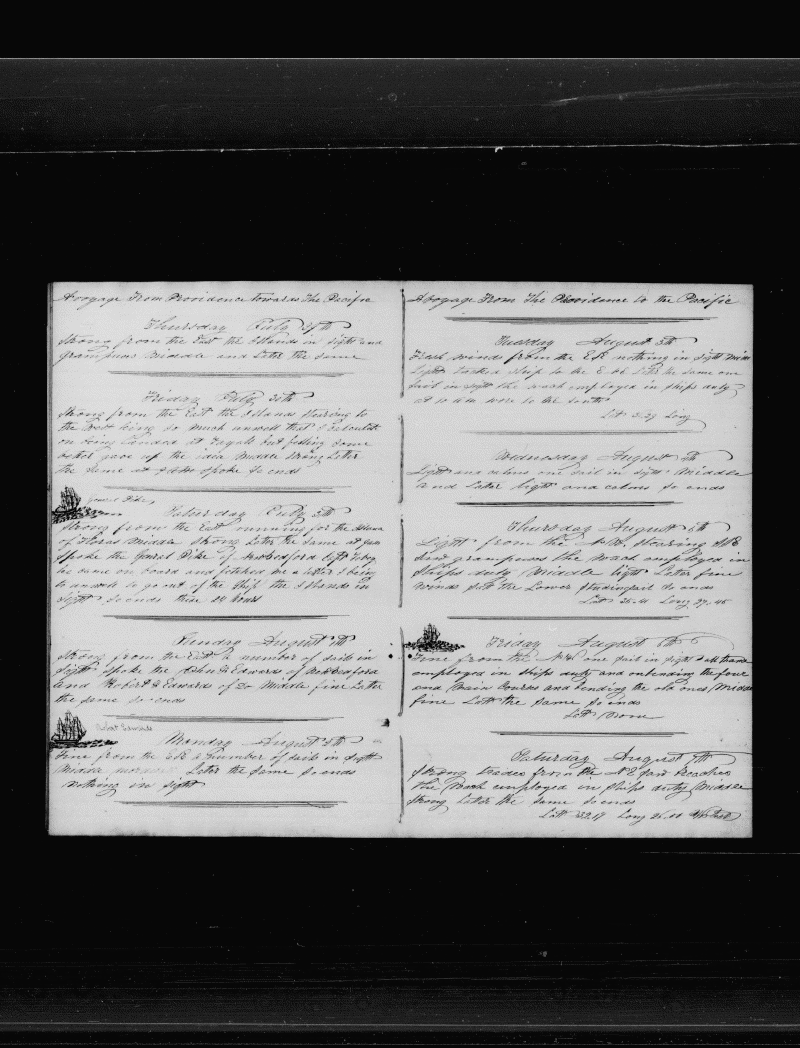 A voyage From Providence towards The Pacific
Thursday July 29th
Strong from the East the Islands in sight and
grampuses Middle and Later the same
Friday July 30th
Strong from the East the Islands bearing to
the West being so much unwell that I
on being Landed at Fayal but feeling some
better gave up the idea Middle strong Later
the same at spoke So ends
General Pike
Saturday July 31th
Strong from the East running for the Island
of Flores Middle strong Later the same at
spoke the General Pike of New Bedford
he came on board and fetched me a letter I being
to unwell to go out of the Ship the Islands in
sight So ends these 24 hours
Sunday August 1th
Strong from the East a number of sails in
sight spoke the John & Edwards of New Bedford
and Robert & Edwards of Do Middle fine Later
the same so ends
Robert Edwards
Monday August 2th
Fine from the ER a number of sails in sight
Middle Later the same So ends
nothing in sight
A voyage From The Providence to the Pacific
Tuesday August 3th
Fresh winds from the ER nothing in sight Middle
Light tacked ship to the Later the same one
sail in sight the watch employed in ships duty
at 10 AM wore to the South
Latt Long
Wednesday August 4th
Light and calms one sail in sight Middle
and Later light and calms So ends
Thursday August 5th
Light from the steering
saw grampuses the watch employed in
ships duty Middle light Later fine
winds set the Lower studingsail So ends
Latt Long 27.45
Friday August 6th
Fine from the one sail in sight all hands
employed in ships duty and unbending the four
and Main Courses and bending the old ones Middle
fine Latt the same So ends
Latt None
Saturday August 7th
Strong trades from the
the Watch employed in ships duty Middle
strong Later the same So ends
Latt 32.17 Long